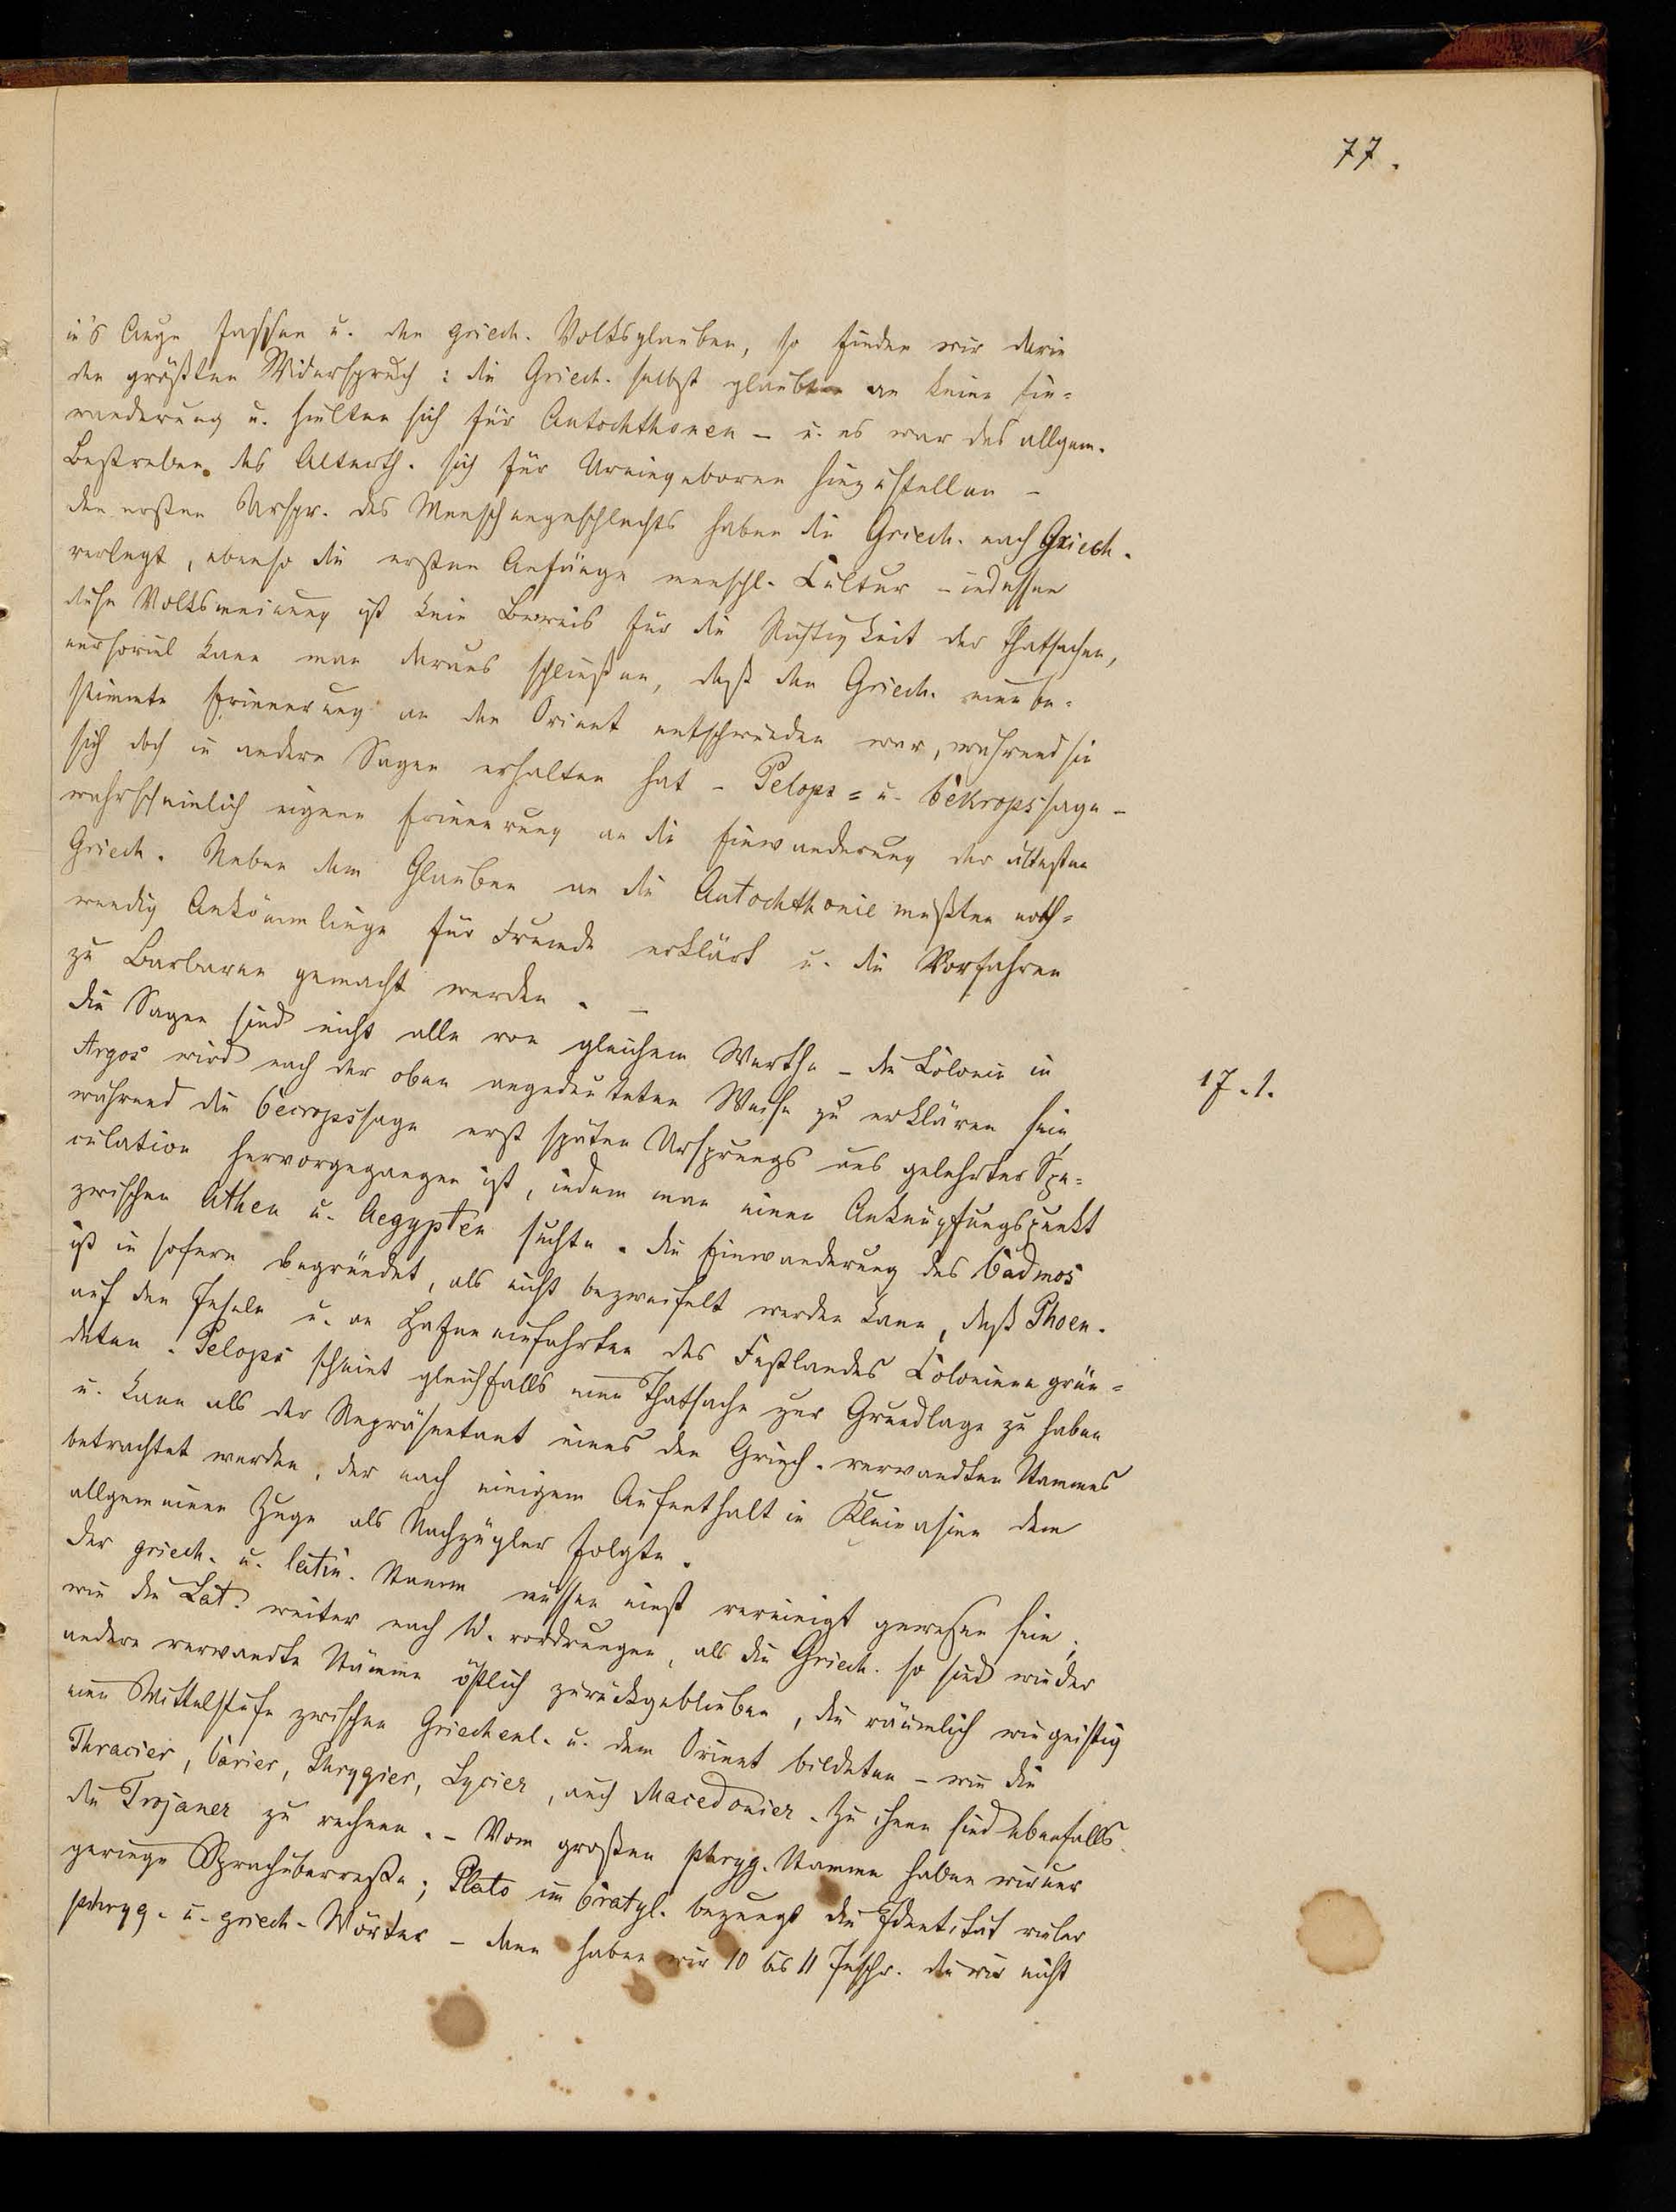 77.
in's Auge fassen u. den griech. Volksglauben, so finden wir darin
den größten Widerspruch: die Griech. selbst glaubten an keine Ein=
wanderung u. hielten sich für Autochthonen – u. es war das allgem.
Bestreben des Alterth. sich für Ureingeborene hinzustellen –
den ersten Urspr. des Menschengeschlechts haben die Griech. nach Griech.
verlegt, ebenso die ersten Anfänge menschl. Cultur – indessen
diese Volksmeinung ist kein Beweis für die Richtigkeit der Thatsachen,
nur soviel kann man daraus schließen, daß den Griech. eine be=
stimmte Erinnerung an den Orient entschwunden war, während sie
sich doch in andern Sagen erhalten hat – Pelops= u. Cekropssage –
wahrscheinlich eigene Erinnerung an die Einwanderung der ältesten
Griech. Neben dem Glauben an die Autochthonie mußten noth=
wendig Ankömmlinge für Fremde erklärt u. die Vorfahren
zu Barbaren gemacht werden. –
Die Sagen sind nicht alle von gleichem Werthe – die Colonie in
Argos wird nach der oben angedeuteten Weise zu erklären sein,
17. 1.
während die Cecropssage erst späten Ursprungs aus gelehrter Spe=
culation hervorgegangen ist, indem man einen Anknüpfungspunkt
zwischen Athen u. Aegypten suchte. Die Einwanderung des Cadmos
ist in sofern begründet, als nicht bezweifelt werden kann, daß Phoen.
auf den Inseln u. an Hafeneinfahrten des Festlandes Colonien grün=
deten. Pelops scheint gleichfalls eine Thatsache zur Grundlage zu haben
u. kann als der Repräsentant eines den Griech. verwandten Stammes
betrachtet werden, der nach einigem Aufenthalt in Kleinasien dem
allgemeinen Zuge als Nachzügler folgte.
Der griech. u. latin. Stamm müssen einst vereinigt gewesen sein;
wie die Lat. weiter nach W. vordrungen, als die Griech. so sind wieder
andere verwandte Stämme östlich zurückgeblieben, die räumlich wie geistig
eine Mittelstufe zwischen Griechenl. u. dem Orient bildeten – wie die
Thracier, Carier, Phrygier, Lycier, auch Macedonier. Zu ihnen sind ebenfalls
die Trojaner zu rechnen. – Vom großen phryg. Stamme haben wir nur
geringe Sprachüberreste; Plato im Cratyl. bezeugt die Identität vieler
phryg. u. griech. Wörter – dann haben wir 10 bis 11 Inschr. die wir nicht